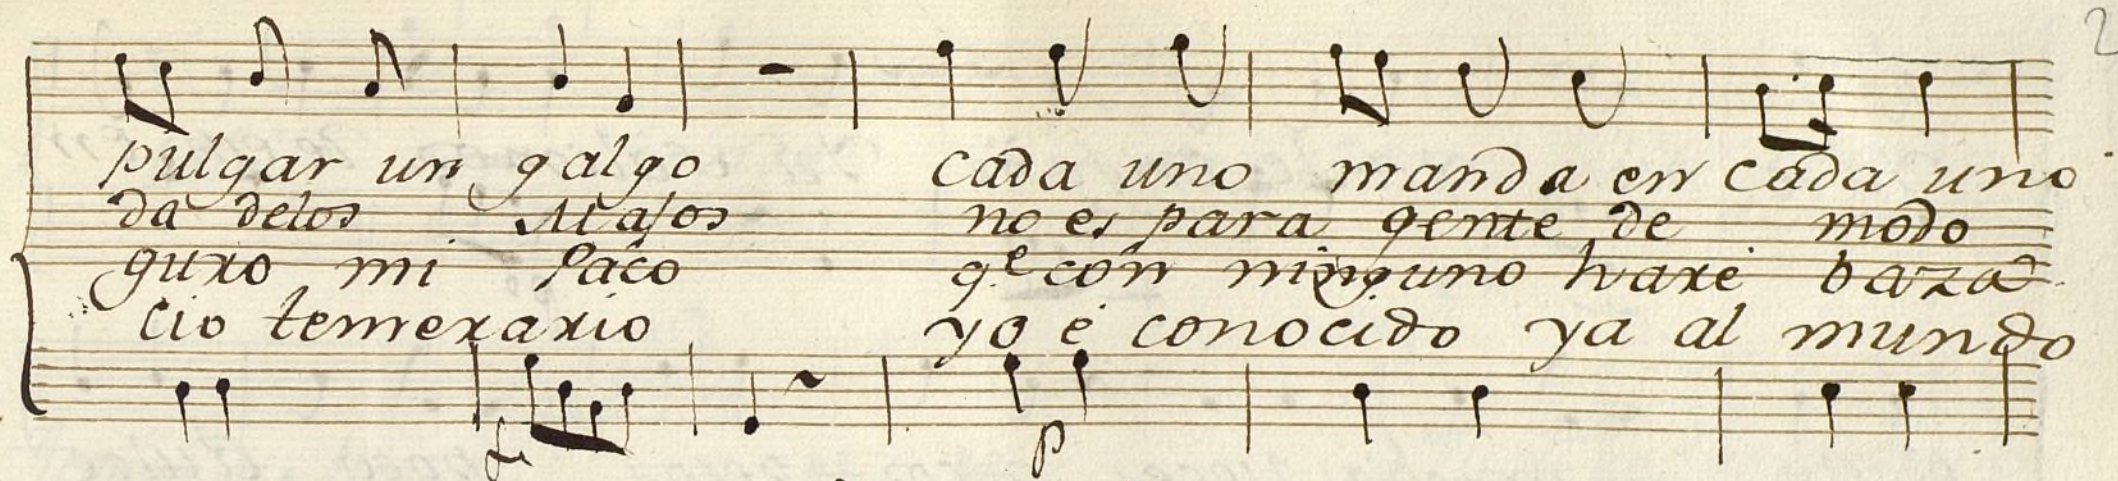 2
pulgar un galgo cada uno manda en cada uno
da delos Majos no es para gente de modo
guro mi Paco q.e con ninguno hare baza
cio temerario yo é conocido ya al mundo
f p